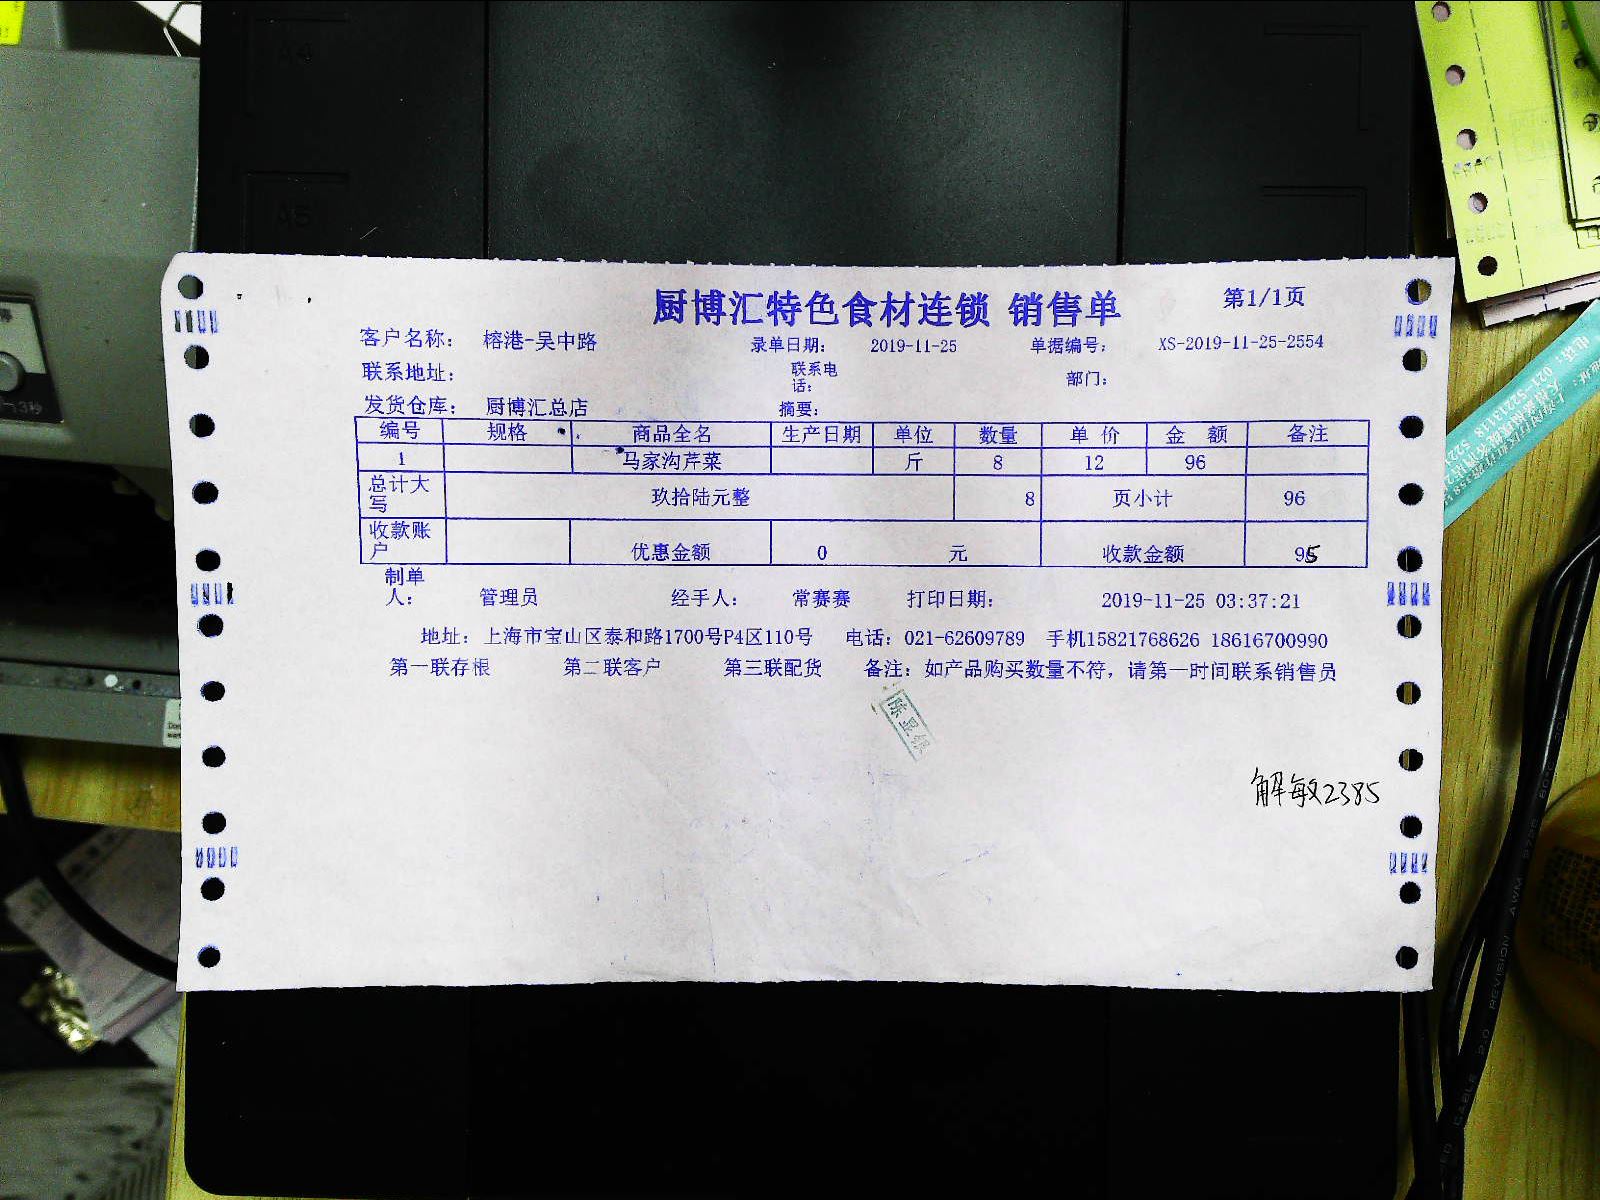 A4
A5
厨博汇特色食材连锁 销售单
第1/1页
客户名称: 榕港-吴中路 录单日期: 2019-11-25 单据编号: XS-2019-11-25-2554
联系地址: 联系电话: 部门:
发货仓库: 厨博汇总店 摘要:
编号 规格 商品全名 生产日期 单位 数量 单价 金额 备注
1 马家沟芹菜 斤 8 12 96
总计大写 玖拾陆元整 8 页小计 96
收款账户 优惠金额 0 元 收款金额 95
制单人: 管理员 经手人: 常赛赛 打印日期: 2019-11-25 03:37:21
地址: 上海市宝山区泰和路1700号P4区110号 电话: 021-62609789 手机15821768626 18616700990
第一联存根 第二联客户 第三联配货 备注: 如产品购买数量不符, 请第一时间联系销售员
陈显银
解敏2385